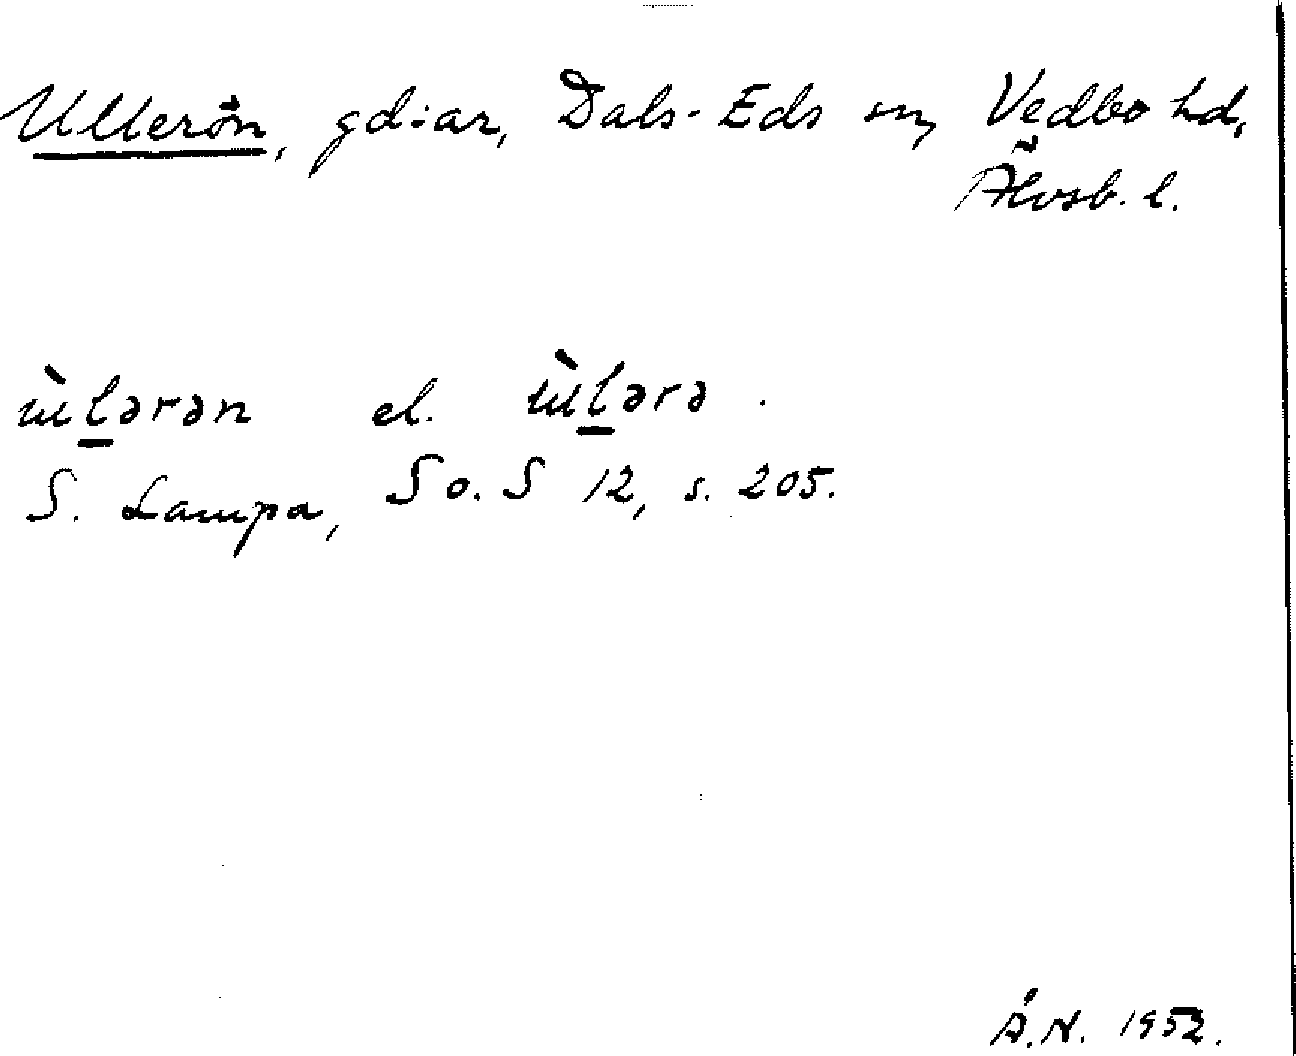 Ullerön, gd:ar, Dals-Eds sn, Vedbo hd,
Älvsb. l.
ɯ̀l̠ərən el. ɯ̀l̠ərə.
S. Lampa, So. S 12, s. 205.
Å.N. 1952.